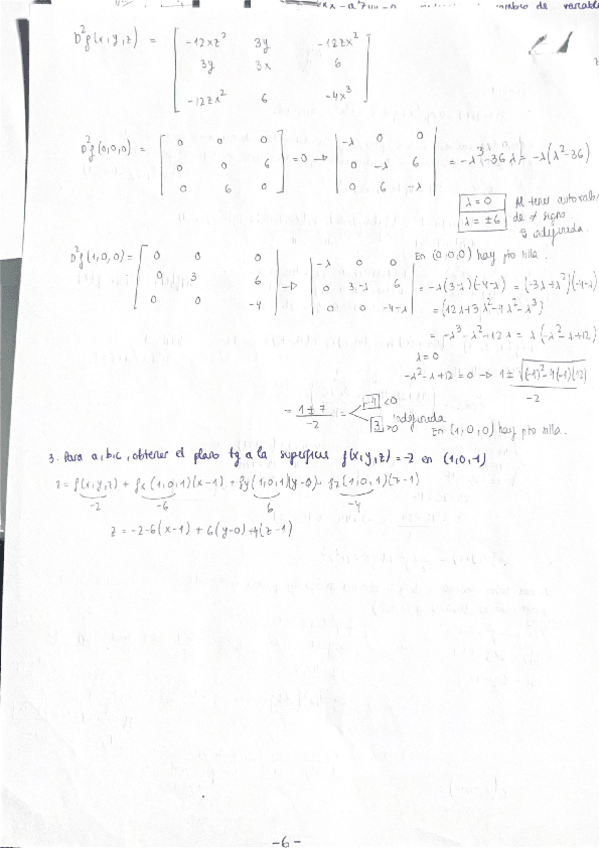 de variabl
D²f(x,y,z) = [ -12xz² 3y -12zx²
3y 3x 6
-12zx² 6 -4x³ ]
D²f(0,0,0) = [ 0 0 0
0 0 6
0 6 0 ] = 0 → | -λ 0 0
0 -λ 6
0 6 -λ | = -λ³ - 36λ = -λ(λ²-36)
λ = 0
λ = ±6
Al tener autoval
de ≠ signo
indefinida.
En (0,0,0) hay pto silla.
D²f(1,0,0) = [ 0 0 0
0 3 6
0 0 -4 | → | -λ 0 0
0 3-λ 6
0 0 -4-λ | = -λ(3-λ)(-4-λ) = (-3λ+λ²)(-4-λ)
= (12λ+3λ²-4λ²-λ³)
= -λ³-λ²+12λ = λ(-λ²-λ+12)
λ=0
-λ²-λ+12=0 → 1±√(-1)²-4(-1)(12) / -2
= 1±7 / -2 = -4 <0
3 >0 indefinida
En (1,0,0) hay pto silla.
3. Para a,b,c, obtener el plano tg a la superficie f(x,y,z)=-2 en (1,0,1)
z = f(x,y,z) + fx(1,0,1)(x-1) + fy(1,0,1)(y-0) + fz(1,0,1)(z-1)
-2 -6 6 -4
z = -2-6(x-1) + 6(y-0) -4(z-1)
-6-